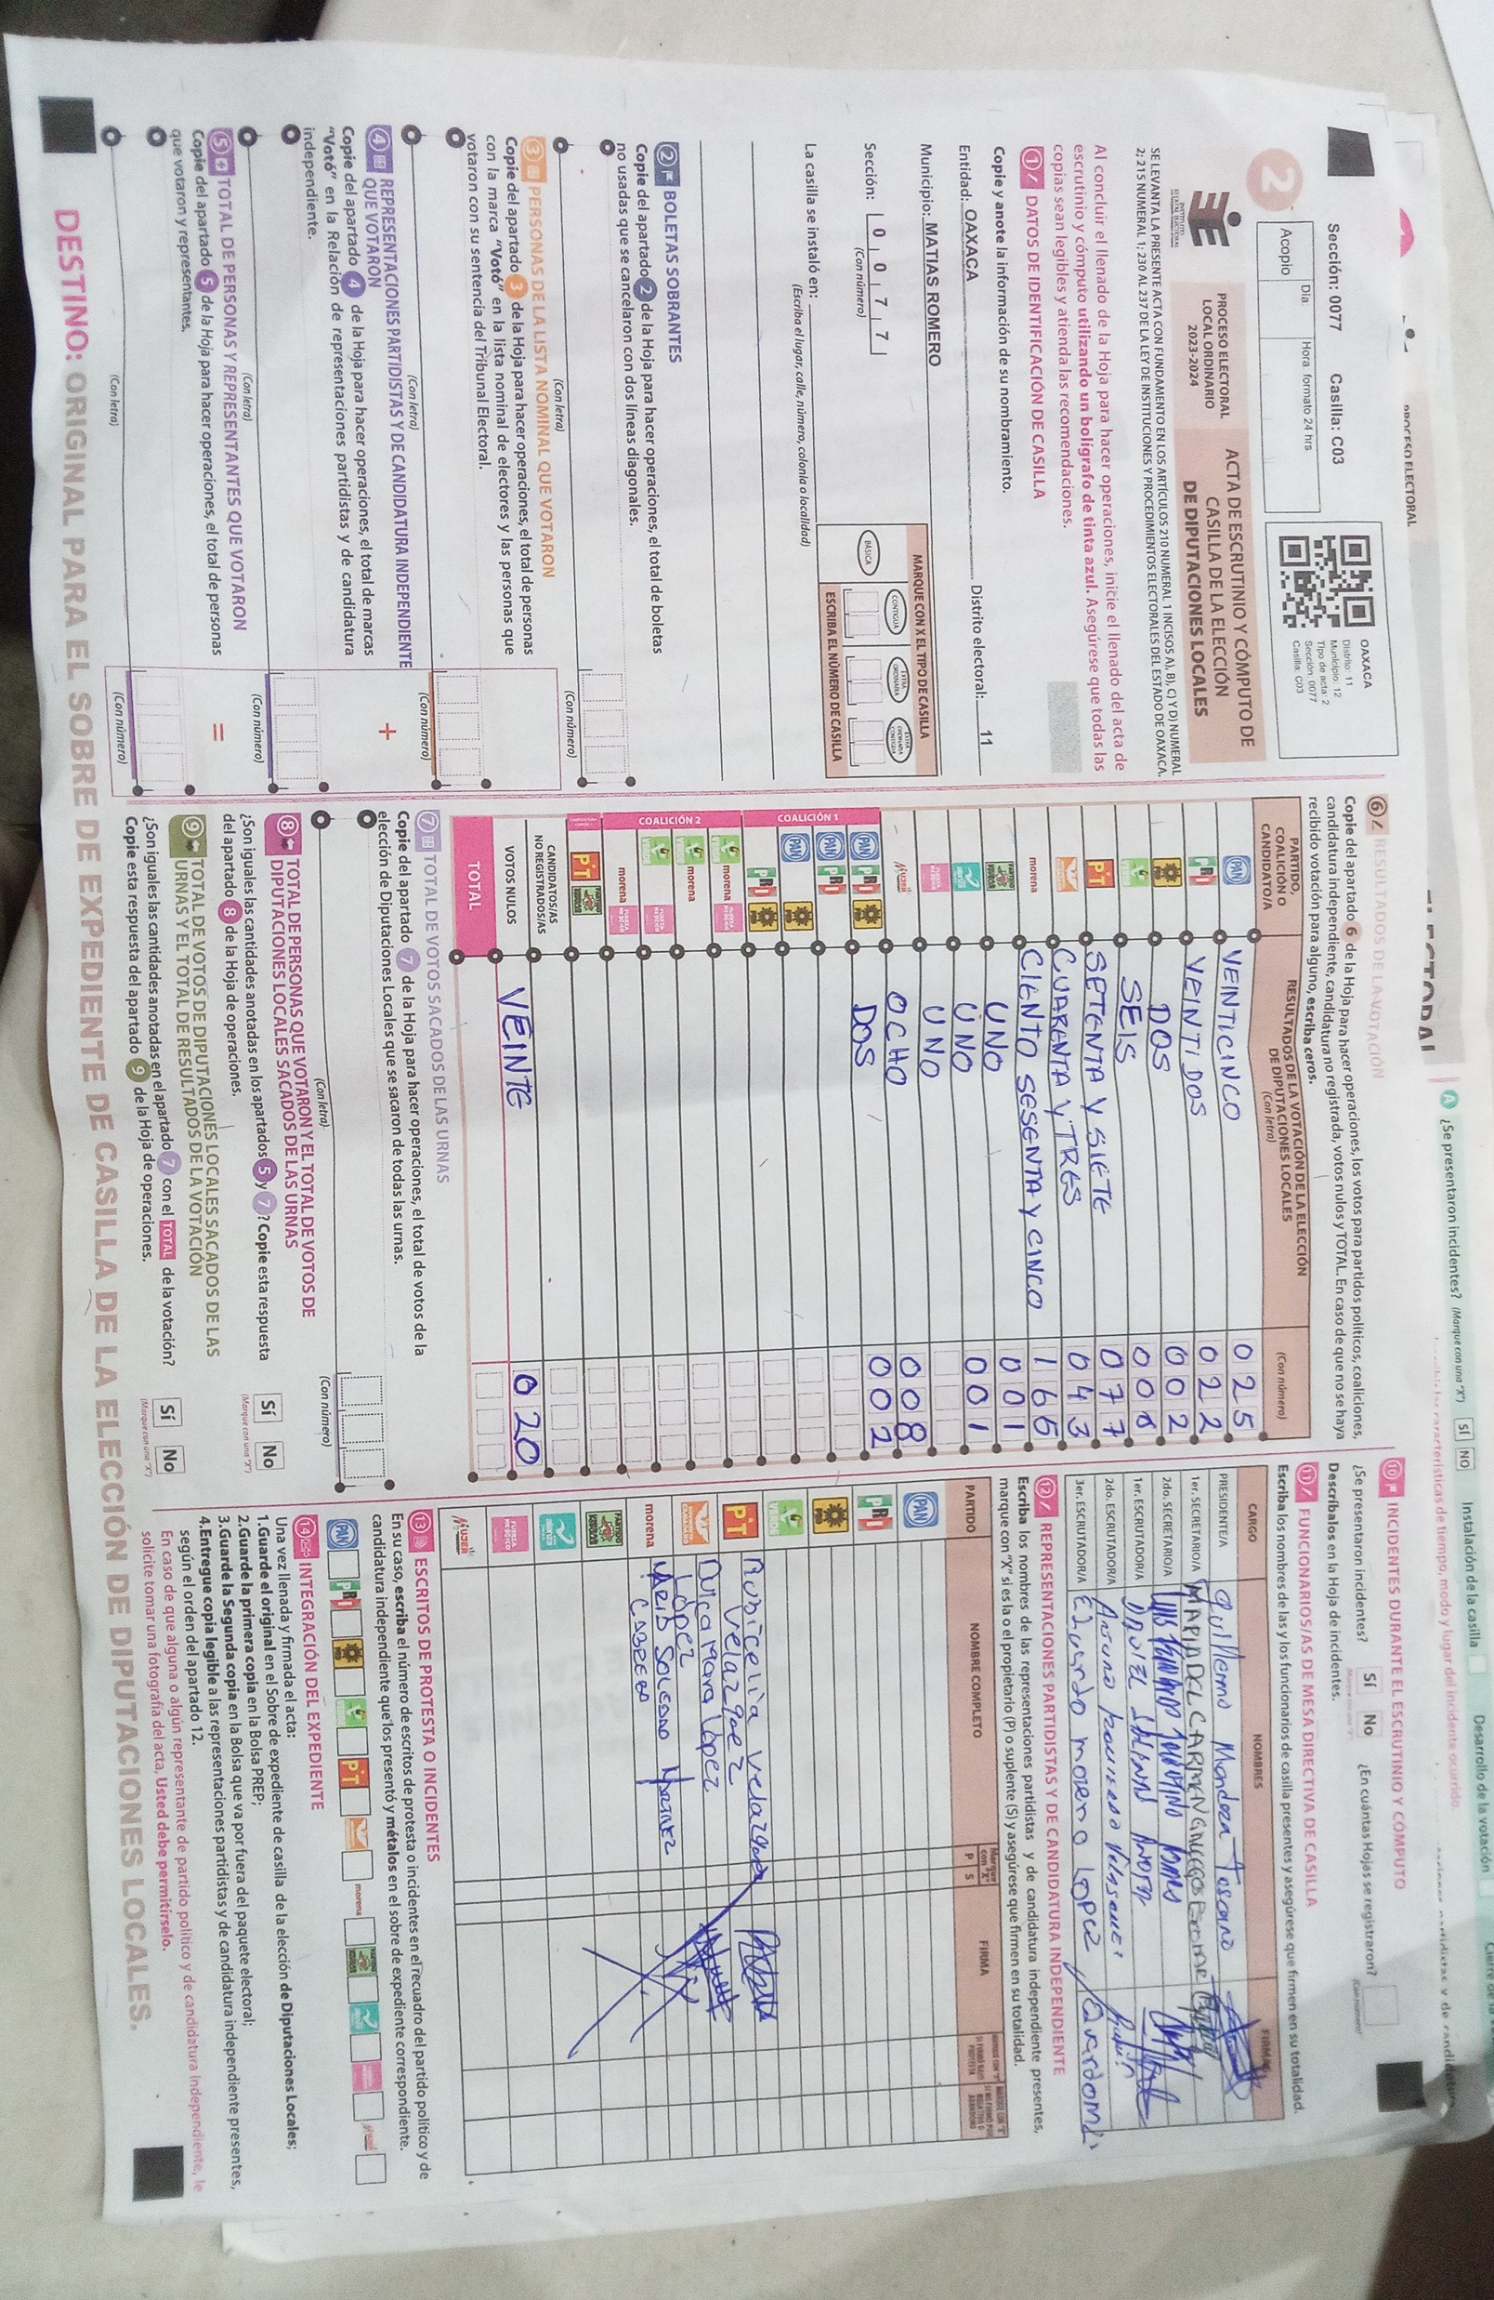 PROCESO ELECTORAL
A ¿Se presentaron incidentes? (Marque con una "X") SÍ NO Instalación de la casilla Desarrollo de la votación
Sección: 0077 Casilla: C03
2
Acopio
Día
Hora formato 24 hrs
OAXACA
Distrito: 11
Municipio: 12
Tipo de acta: 2
Sección: 0077
Casilla: C03
PROCESO ELECTORAL
LOCAL ORDINARIO
2023-2024
ACTA DE ESCRUTINIO Y CÓMPUTO DE
CASILLA DE LA ELECCIÓN
DE DIPUTACIONES LOCALES
SE LEVANTA LA PRESENTE ACTA CON FUNDAMENTO EN LOS ARTÍCULOS 210 NUMERAL 1 INCISOS A), B), C) Y D) NUMERAL
2; 215 NUMERAL 1; 230 AL 237 DE LA LEY DE INSTITUCIONES Y PROCEDIMIENTOS ELECTORALES DEL ESTADO DE OAXACA.
Al concluir el llenado de la Hoja para hacer operaciones, inicie el llenado del acta de
escrutinio y cómputo utilizando un bolígrafo de tinta azul. Asegúrese que todas las
copias sean legibles y atienda las recomendaciones.
1 DATOS DE IDENTIFICACIÓN DE CASILLA
Copie y anote la información de su nombramiento.
Entidad: OAXACA Distrito electoral: 11
Municipio: MATIAS ROMERO
Sección: 0 0 7 7
(Con número)
MARQUE CON X EL TIPO DE CASILLA
BÁSICA CONTIGUA EXTRA ORDINARIA EXTRA ORDINARIA CONTIGUA
ESCRIBA EL NÚMERO DE CASILLA
La casilla se instaló en:
(Escriba el lugar, calle, número, colonia o localidad)
2 BOLETAS SOBRANTES
Copie del apartado 2 de la Hoja para hacer operaciones, el total de boletas
no usadas que se cancelaron con dos líneas diagonales.
(Con letra) (Con número)
3 PERSONAS DE LA LISTA NOMINAL QUE VOTARON
Copie del apartado 3 de la Hoja para hacer operaciones, el total de personas
con la marca "Votó" en la lista nominal de electores y las personas que
votaron con su sentencia del Tribunal Electoral.
(Con letra) (Con número)
4 REPRESENTACIONES PARTIDISTAS Y DE CANDIDATURA INDEPENDIENTE
QUE VOTARON
Copie del apartado 4 de la Hoja para hacer operaciones, el total de marcas
"Votó" en la Relación de representaciones partidistas y de candidatura
independiente.
+
(Con letra) (Con número)
5 TOTAL DE PERSONAS Y REPRESENTANTES QUE VOTARON
Copie del apartado 5 de la Hoja para hacer operaciones, el total de personas
que votaron y representantes.
=
(Con letra) (Con número)
6 RESULTADOS DE LA VOTACIÓN
Copie del apartado 6 de la Hoja para hacer operaciones, los votos para partidos políticos, coaliciones,
candidatura independiente, candidatura no registrada, votos nulos y TOTAL. En caso de que no se haya
recibido votación para alguno, escriba ceros.
PARTIDO, COALICIÓN O CANDIDATO/A
RESULTADOS DE LA VOTACIÓN DE LA ELECCIÓN DE DIPUTACIONES LOCALES (Con letra)
(Con número)
PAN VEINTICINCO 025
PRI VEINTIDOS 022
PRD DOS 002
VERDE SEIS 006
PT SETENTA Y SIETE 077
CUARENTA Y TRES 043
morena CIENTO SESENTA Y CINCO 165
UNO 001
UNO 001
UNO
MUJER OCHO 008
COALICIÓN 1
PAN PRI PRD DOS 002
PAN PRI
PAN PRD
PRI PRD
COALICIÓN 2
VERDE morena
VERDE morena
VERDE
morena
PT
CANDIDATOS/AS
NO REGISTRADOS/AS
VOTOS NULOS VEINTE 020
TOTAL
7 TOTAL DE VOTOS SACADOS DE LAS URNAS
Copie del apartado 7 de la Hoja para hacer operaciones, el total de votos de la
elección de Diputaciones Locales que se sacaron de todas las urnas.
(Con letra) (Con número)
8 TOTAL DE PERSONAS QUE VOTARON Y EL TOTAL DE VOTOS DE
DIPUTACIONES LOCALES SACADOS DE LAS URNAS
¿Son iguales las cantidades anotadas en los apartados 5 y 7? Copie esta respuesta
del apartado 8 de la Hoja de operaciones.
Sí No
(Marque con una "X")
9 TOTAL DE VOTOS DE DIPUTACIONES LOCALES SACADOS DE LAS
URNAS Y EL TOTAL DE RESULTADOS DE LA VOTACIÓN
¿Son iguales las cantidades anotadas en el apartado 7 con el TOTAL de la votación?
Copie esta respuesta del apartado 9 de la Hoja de operaciones.
Sí No
(Marque con una "X")
10 INCIDENTES DURANTE EL ESCRUTINIO Y CÓMPUTO
¿Se presentaron incidentes? Sí No ¿En cuántas Hojas se registraron?
(Con número)
Descríbalos en la Hoja de incidentes.
11 FUNCIONARIOS/AS DE MESA DIRECTIVA DE CASILLA
Escriba los nombres de las y los funcionarios de casilla presentes y asegúrese que firmen en su totalidad.
CARGO NOMBRES FIRMA
PRESIDENTE/A Guillermo Mendoza Toscano
1er. SECRETARIO/A MARIA DEL CARMEN
2do. SECRETARIO/A
1er. ESCRUTADOR/A
2do. ESCRUTADOR/A
3er. ESCRUTADOR/A Eduardo moreno LOPEZ
12 REPRESENTACIONES PARTIDISTAS Y DE CANDIDATURA INDEPENDIENTE
Escriba los nombres de las representaciones partidistas y de candidatura independiente presentes,
marque con "X" si es la o el propietario (P) o suplente (S) y asegúrese que firmen en su totalidad.
PARTIDO NOMBRE COMPLETO Marque con "X" P S FIRMA
PAN
PRI
PRD
VERDE Rubicelia Velazquez
Velazquez
PT Mara López
López
morena SOLEDAD MARTINEZ
CABRERA
MUJER
13 ESCRITOS DE PROTESTA O INCIDENTES
En su caso, escriba el número de escritos de protesta o incidentes en el recuadro del partido político y de
candidatura independiente que los presentó y métalos en el sobre de expediente correspondiente.
PAN PRI PRD VERDE PT morena
14 INTEGRACIÓN DEL EXPEDIENTE
Una vez llenada y firmada el acta:
1.Guarde el original en el Sobre de expediente de casilla de la elección de Diputaciones Locales;
2.Guarde la primera copia en la Bolsa PREP;
3.Guarde la Segunda copia en la Bolsa que va por fuera del paquete electoral;
4.Entregue copia legible a las representaciones partidistas y de candidatura independiente presentes,
según el orden del apartado 12.
En caso de que alguna o algún representante de partido político y de candidatura independiente, le
solicite tomar una fotografía del acta, Usted debe permitírselo.
DESTINO: ORIGINAL PARA EL SOBRE DE EXPEDIENTE DE CASILLA DE LA ELECCIÓN DE DIPUTACIONES LOCALES.